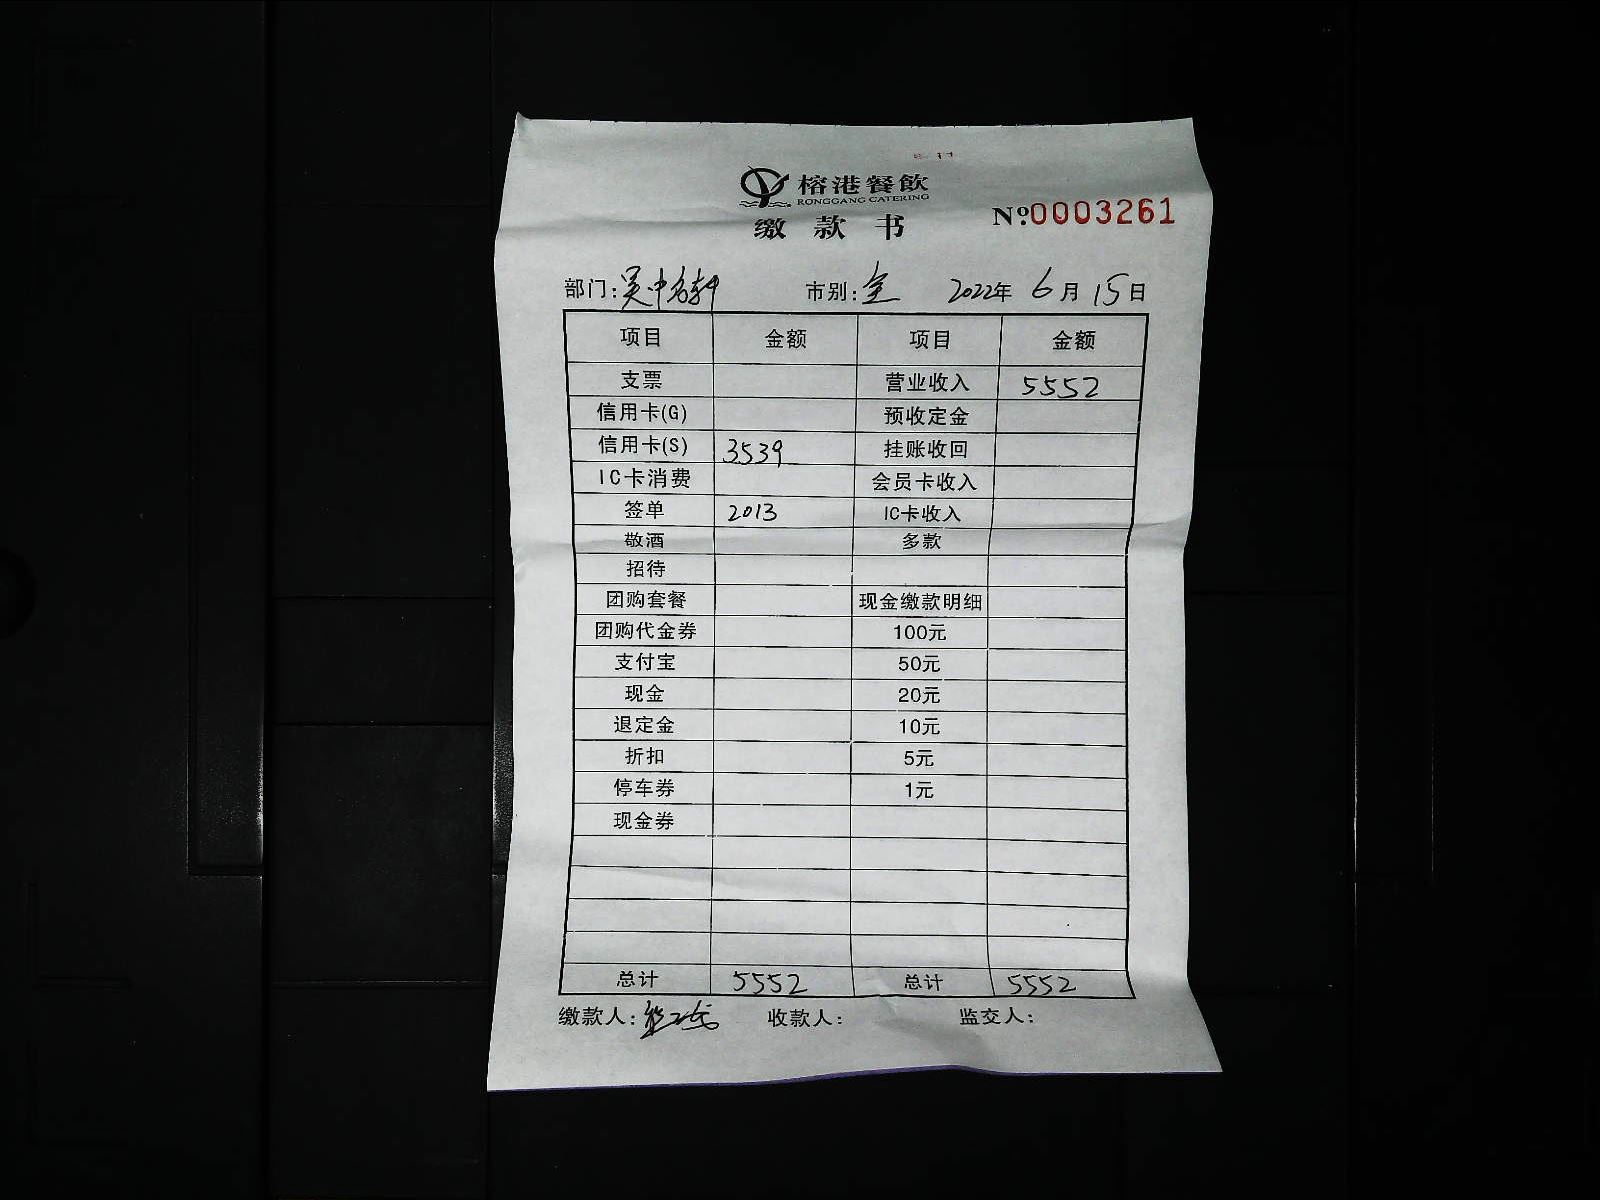 榕港餐飲
RONGGANG CATERING
缴款书
№:0003261
部门:吴中名轩 市别:全 2022年 6月 15日
项目 金额 项目 金额
支票 营业收入 5552
信用卡(G) 预收定金
信用卡(S) 3539 挂账收回
IC卡消费 会员卡收入
签单 2013 IC卡收入
敬酒 多款
招待
团购套餐 现金缴款明细
团购代金券 100元
支付宝 50元
现金 20元
退定金 10元
折扣 5元
停车券 1元
现金券
总计 5552 总计 5552
缴款人: 收款人: 监交人: